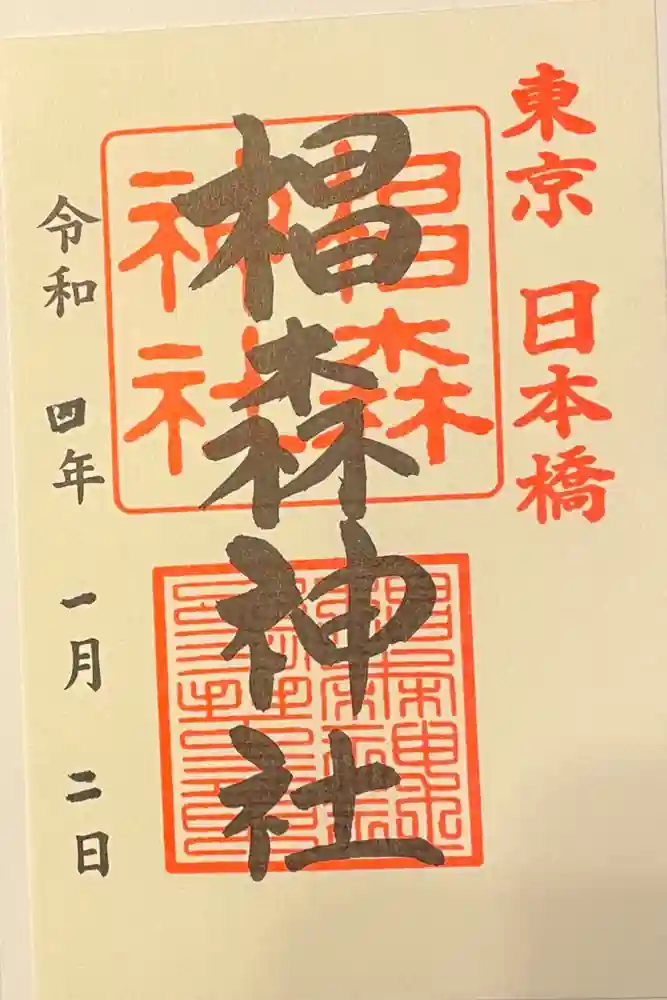 東京 日本橋
椙森神社
椙森
神社
令和 四年 一月 二日